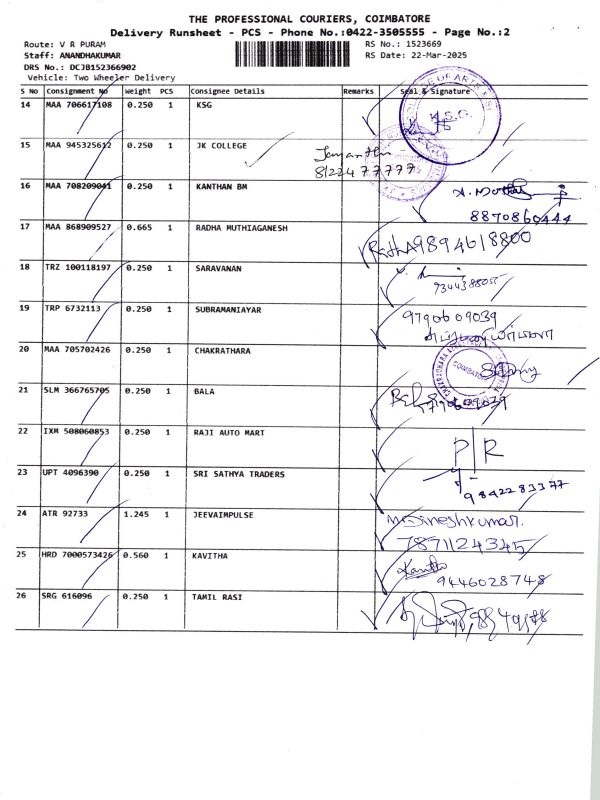 THE PROFESSIONAL COURIERS, COIMBATORE
Delivery Runsheet - PCS - Phone No.:0422-3505555 - Page No.:2
Route: V R PURAM
RS No.: 1523669
Staff: ANANDHAKUMAR
RS Date: 22-Mar-2025
DRS No.: DCJB152366902
Vehicle: Two Wheeler Delivery
S No Consignment No Weight PCS Consignee Details Remarks Seal & Signature
14 MAA 706617108 0.250 1 KSG
K.S.G.
15 MAA 945325612 0.250 1 JK COLLEGE
Jayanthi
8122477777
16 MAA 708209041 0.250 1 KANTHAN BM
8870860444
17 MAA 868909527 0.665 1 RADHA MUTHIAGANESH
Radha 9894618800
18 TRZ 100118197 0.250 1 SARAVANAN
19 TRP 6732113 0.250 1 SUBRAMANIAYAR
9790609039
20 MAA 705702426 0.250 1 CHAKRATHARA
COIMBATORE
21 SLM 366765705 0.250 1 BALA
22 IXM 508060853 0.250 1 RAJI AUTO MART
P R
23 UPT 4096390 0.250 1 SRI SATHYA TRADERS
9842283377
24 ATR 92733 1.245 1 JEEVAIMPULSE
Dineshkumar.
7871124345
25 HRD 7000573426 0.560 1 KAVITHA
9446028748
26 SRG 616096 0.250 1 TAMIL RASI